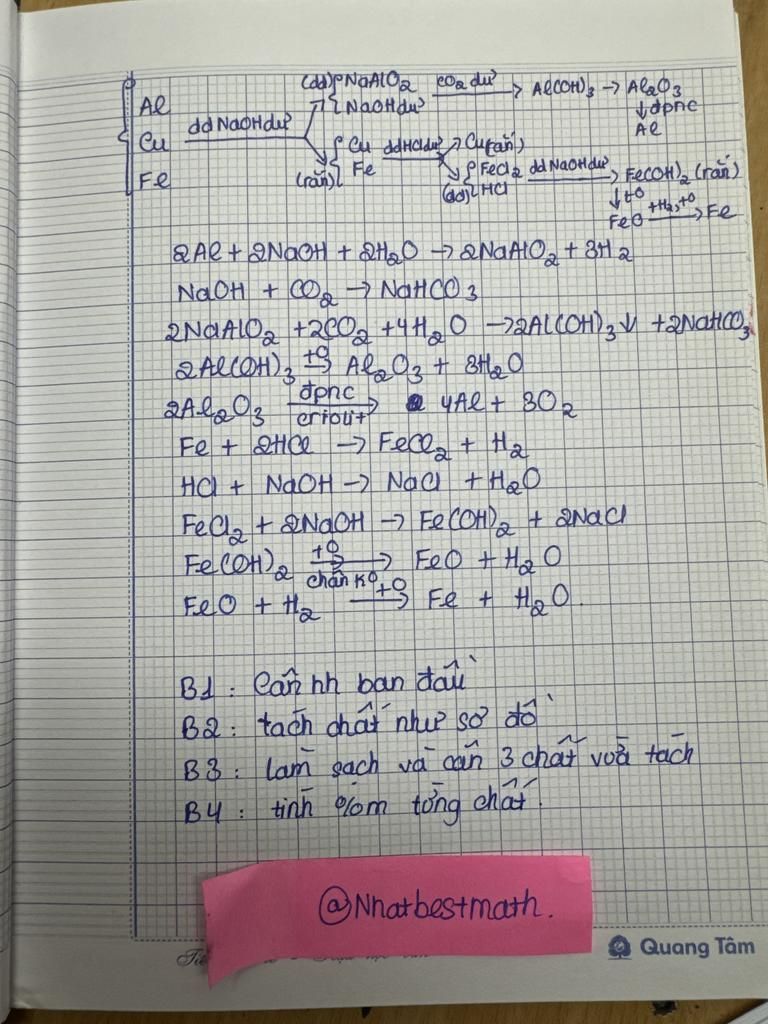 (dd) { NaAlO2 CO2 dư → Al(OH)3 → Al2O3
Al { NaOH dư ↓ đpnc
Cu dd NaOH dư Al
{ Cu dd HCl dư → Cu (rắn)
Fe (rắn) { Fe (dd) { FeCl2 dd NaOH dư → Fe(OH)2 (rắn)
HCl ↓ t0
FeO +H2, t0 → Fe
2Al + 2NaOH + 2H2O → 2NaAlO2 + 3H2
NaOH + CO2 → NaHCO3
2NaAlO2 + 2CO2 + 4H2O → 2Al(OH)3 ↓ + 2NaHCO3
2Al(OH)3 t0 → Al2O3 + 3H2O
2Al2O3 đpnc criolit → 4Al + 3O2
Fe + 2HCl → FeCl2 + H2
HCl + NaOH → NaCl + H2O
FeCl2 + 2NaOH → Fe(OH)2 + 2NaCl
Fe(OH)2 t0 chân K0 → FeO + H2O
FeO + H2 t0 → Fe + H2O.
B1 : Cân hh ban đầu
B2 : tách chất như sơ đồ
B3 : làm sạch và cân 3 chất vừa tách
B4 : tính %m từng chất.
@Nhatbestmath.
Quang Tâm